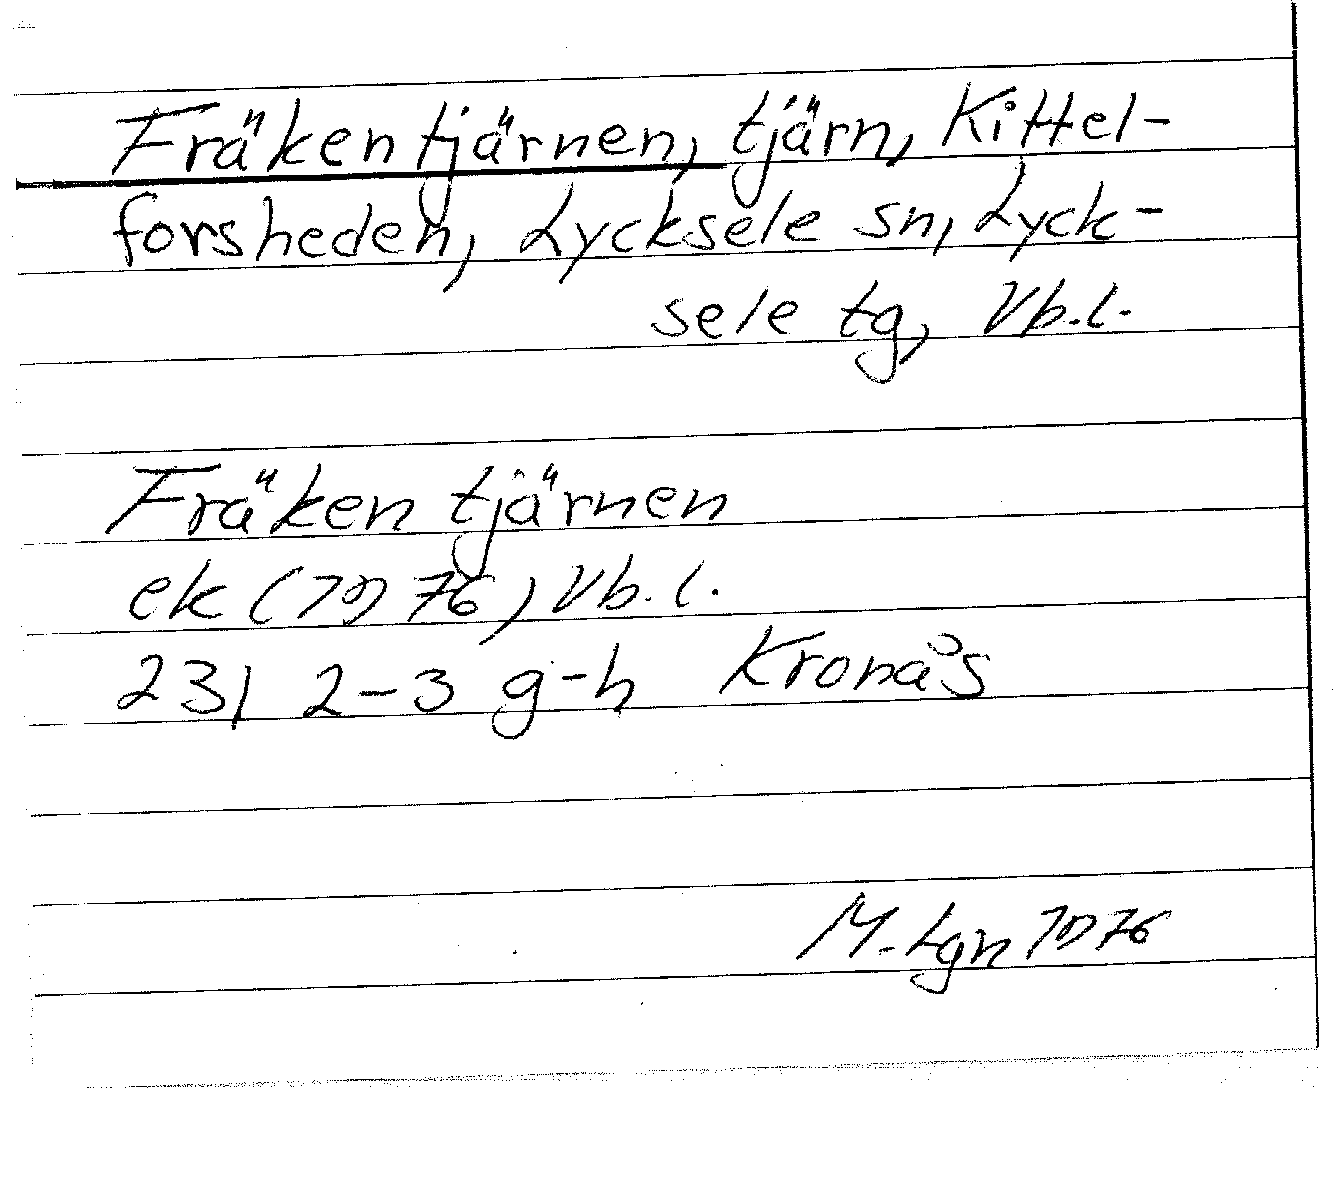 Fräkentjärnen, tjärn, Kittel-
forsheden, Lycksele sn, Lyck-
sele tg, Vb.l.
Fräkentjärnen
ek (1976) Vb.l.
23I 2-3 g-h Kronås
M. Lgn 1976